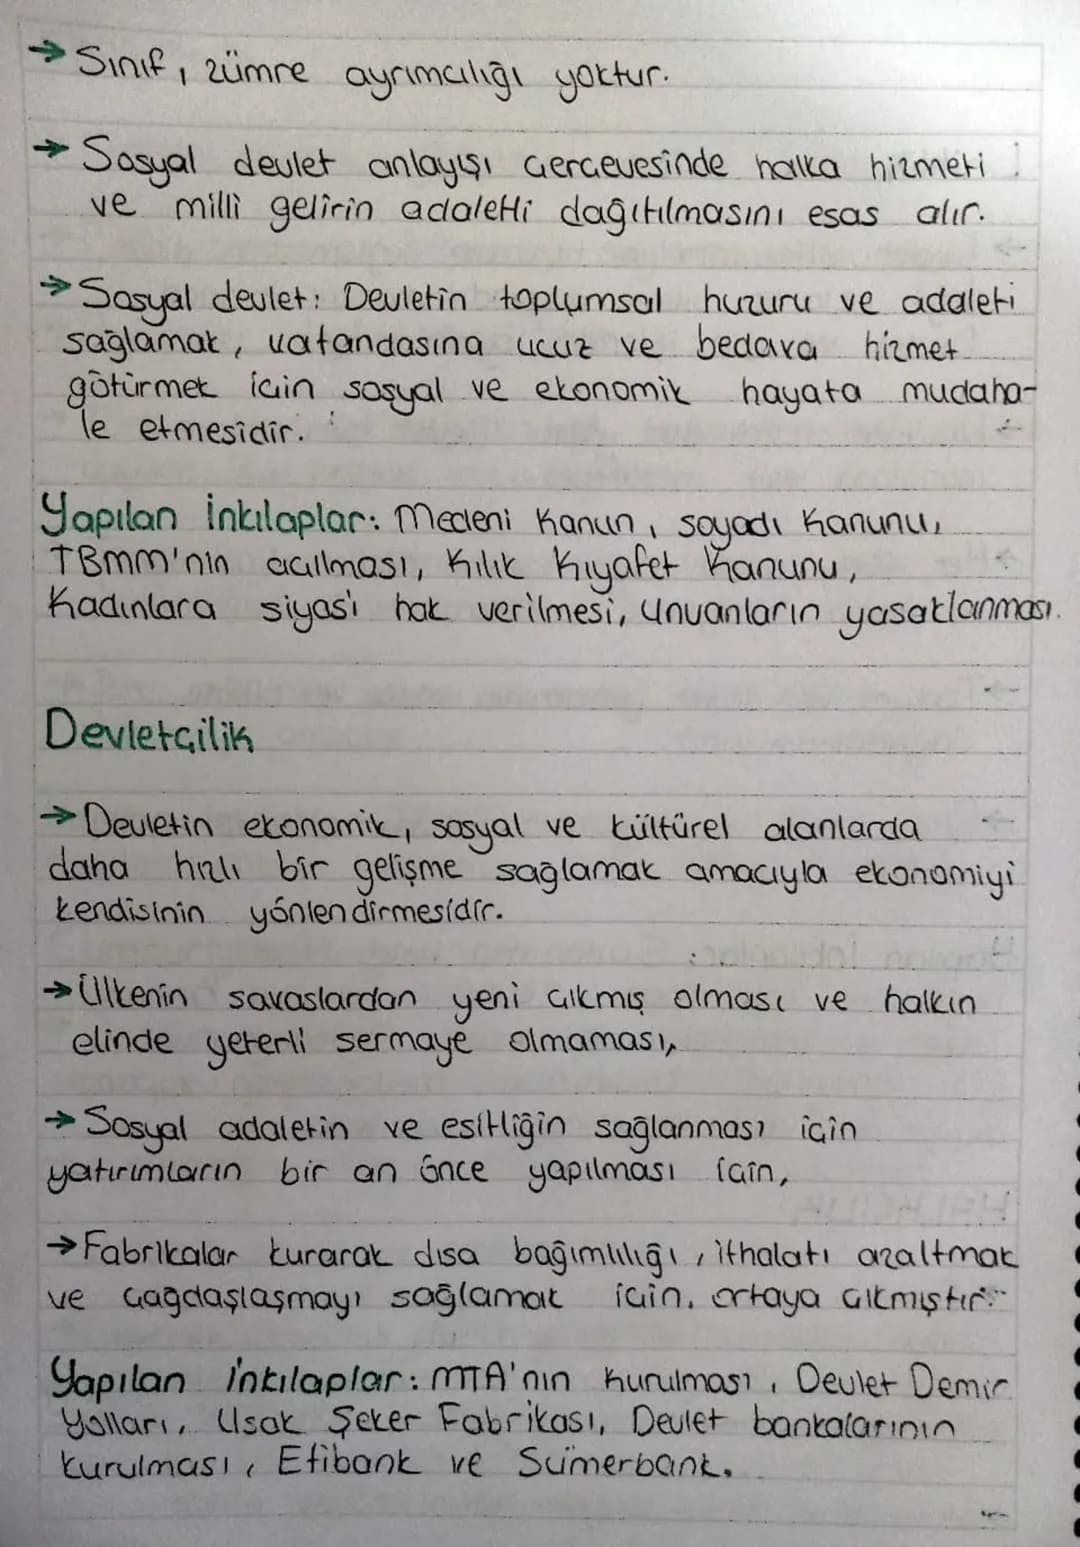 → Sınıf, zümre ayrımcılığı yoktur.
→ Sosyal devlet anlayışı çerçevesinde halka hizmeti
ve milli gelirin adaletli dağıtılmasını esas alır.
→ Sosyal devlet: Devletin toplumsal huzuru ve adaleti
sağlamak, vatandasına ucuz ve bedava hizmet
götürmek için sosyal ve ekonomik hayata mudaha-
le etmesidir.
Yapılan İnkılaplar: Medeni Kanun, soyadı Kanunu,
TBMM'nin açılması, Kılık Kıyafet Kanunu,
Kadınlara siyasi hak verilmesi, Unvanların yasaklanması.
Devletçilik
→ Devletin ekonomik, sosyal ve kültürel alanlarda
daha hızlı bir gelişme sağlamak amacıyla ekonomiyi
kendisinin yönlendirmesidir.
→ Ülkenin savaslardan yeni çıkmış olması ve halkın
elinde yeterli sermaye olmaması,
→ Sosyal adaletin ve esitliğin sağlanması için
yatırımların bir an önce yapılması için,
→ Fabrikalar kurarak dısa bağımlılığı, ithalatı azaltmak
ve çağdaşlaşmayı sağlamak için, ortaya çıkmıştır.
Yapılan inkılaplar: MTA'nın kurulması, Devlet Demir
Yolları, Usak Şeker Fabrikası, Devlet bankalarının
kurulması, Etibank ve Sümerbank.